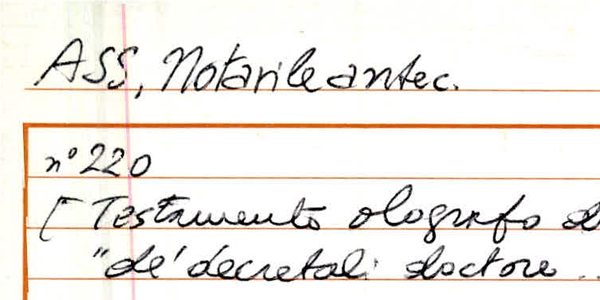 ASS, Notarile antec.
n° 220
[ Testamento olografo d
"de' decretali doctore ..